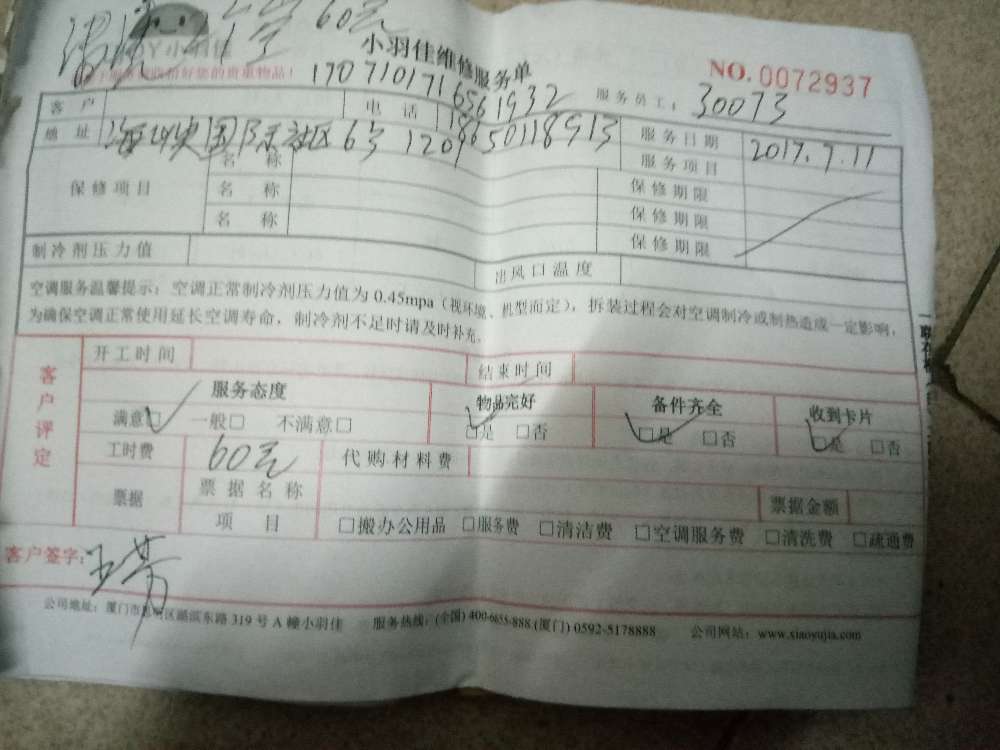 60元
小羽佳
小羽佳维修服务单
NO.0072937
1707101716561932
服务员工: 30073
客户 电话
地址 6号 120 18650118913 服务日期 2017.7.11
名称 服务项目
保修项目 名称 保修期限
名称 保修期限
保修期限
制冷剂压力值 出风口温度
空调服务温馨提示: 空调正常制冷剂压力值为0.45mpa(视环境、机型而定), 拆装过程会对空调制冷或制热造成一定影响,
为确保空调正常使用延长空调寿命, 制冷剂不足时请及时补充。
客户评定
开工时间 结束时间
服务态度 物品完好 备件齐全 收到卡片
满意□ 一般□ 不满意□ □是 □否 □是 □否 □是 □否
工时费 60元 代购材料费
票据 票据名称 票据金额
项目 □搬办公用品 □服务费 □清洁费 □空调服务费 □清洗费 □疏通费
客户签字:
公司地址: 厦门市思明区湖滨东路319号A幢小羽佳 服务热线: (全国) 400-6855-888 (厦门) 0592-5178888 公司网站: www.xiaoyujia.com